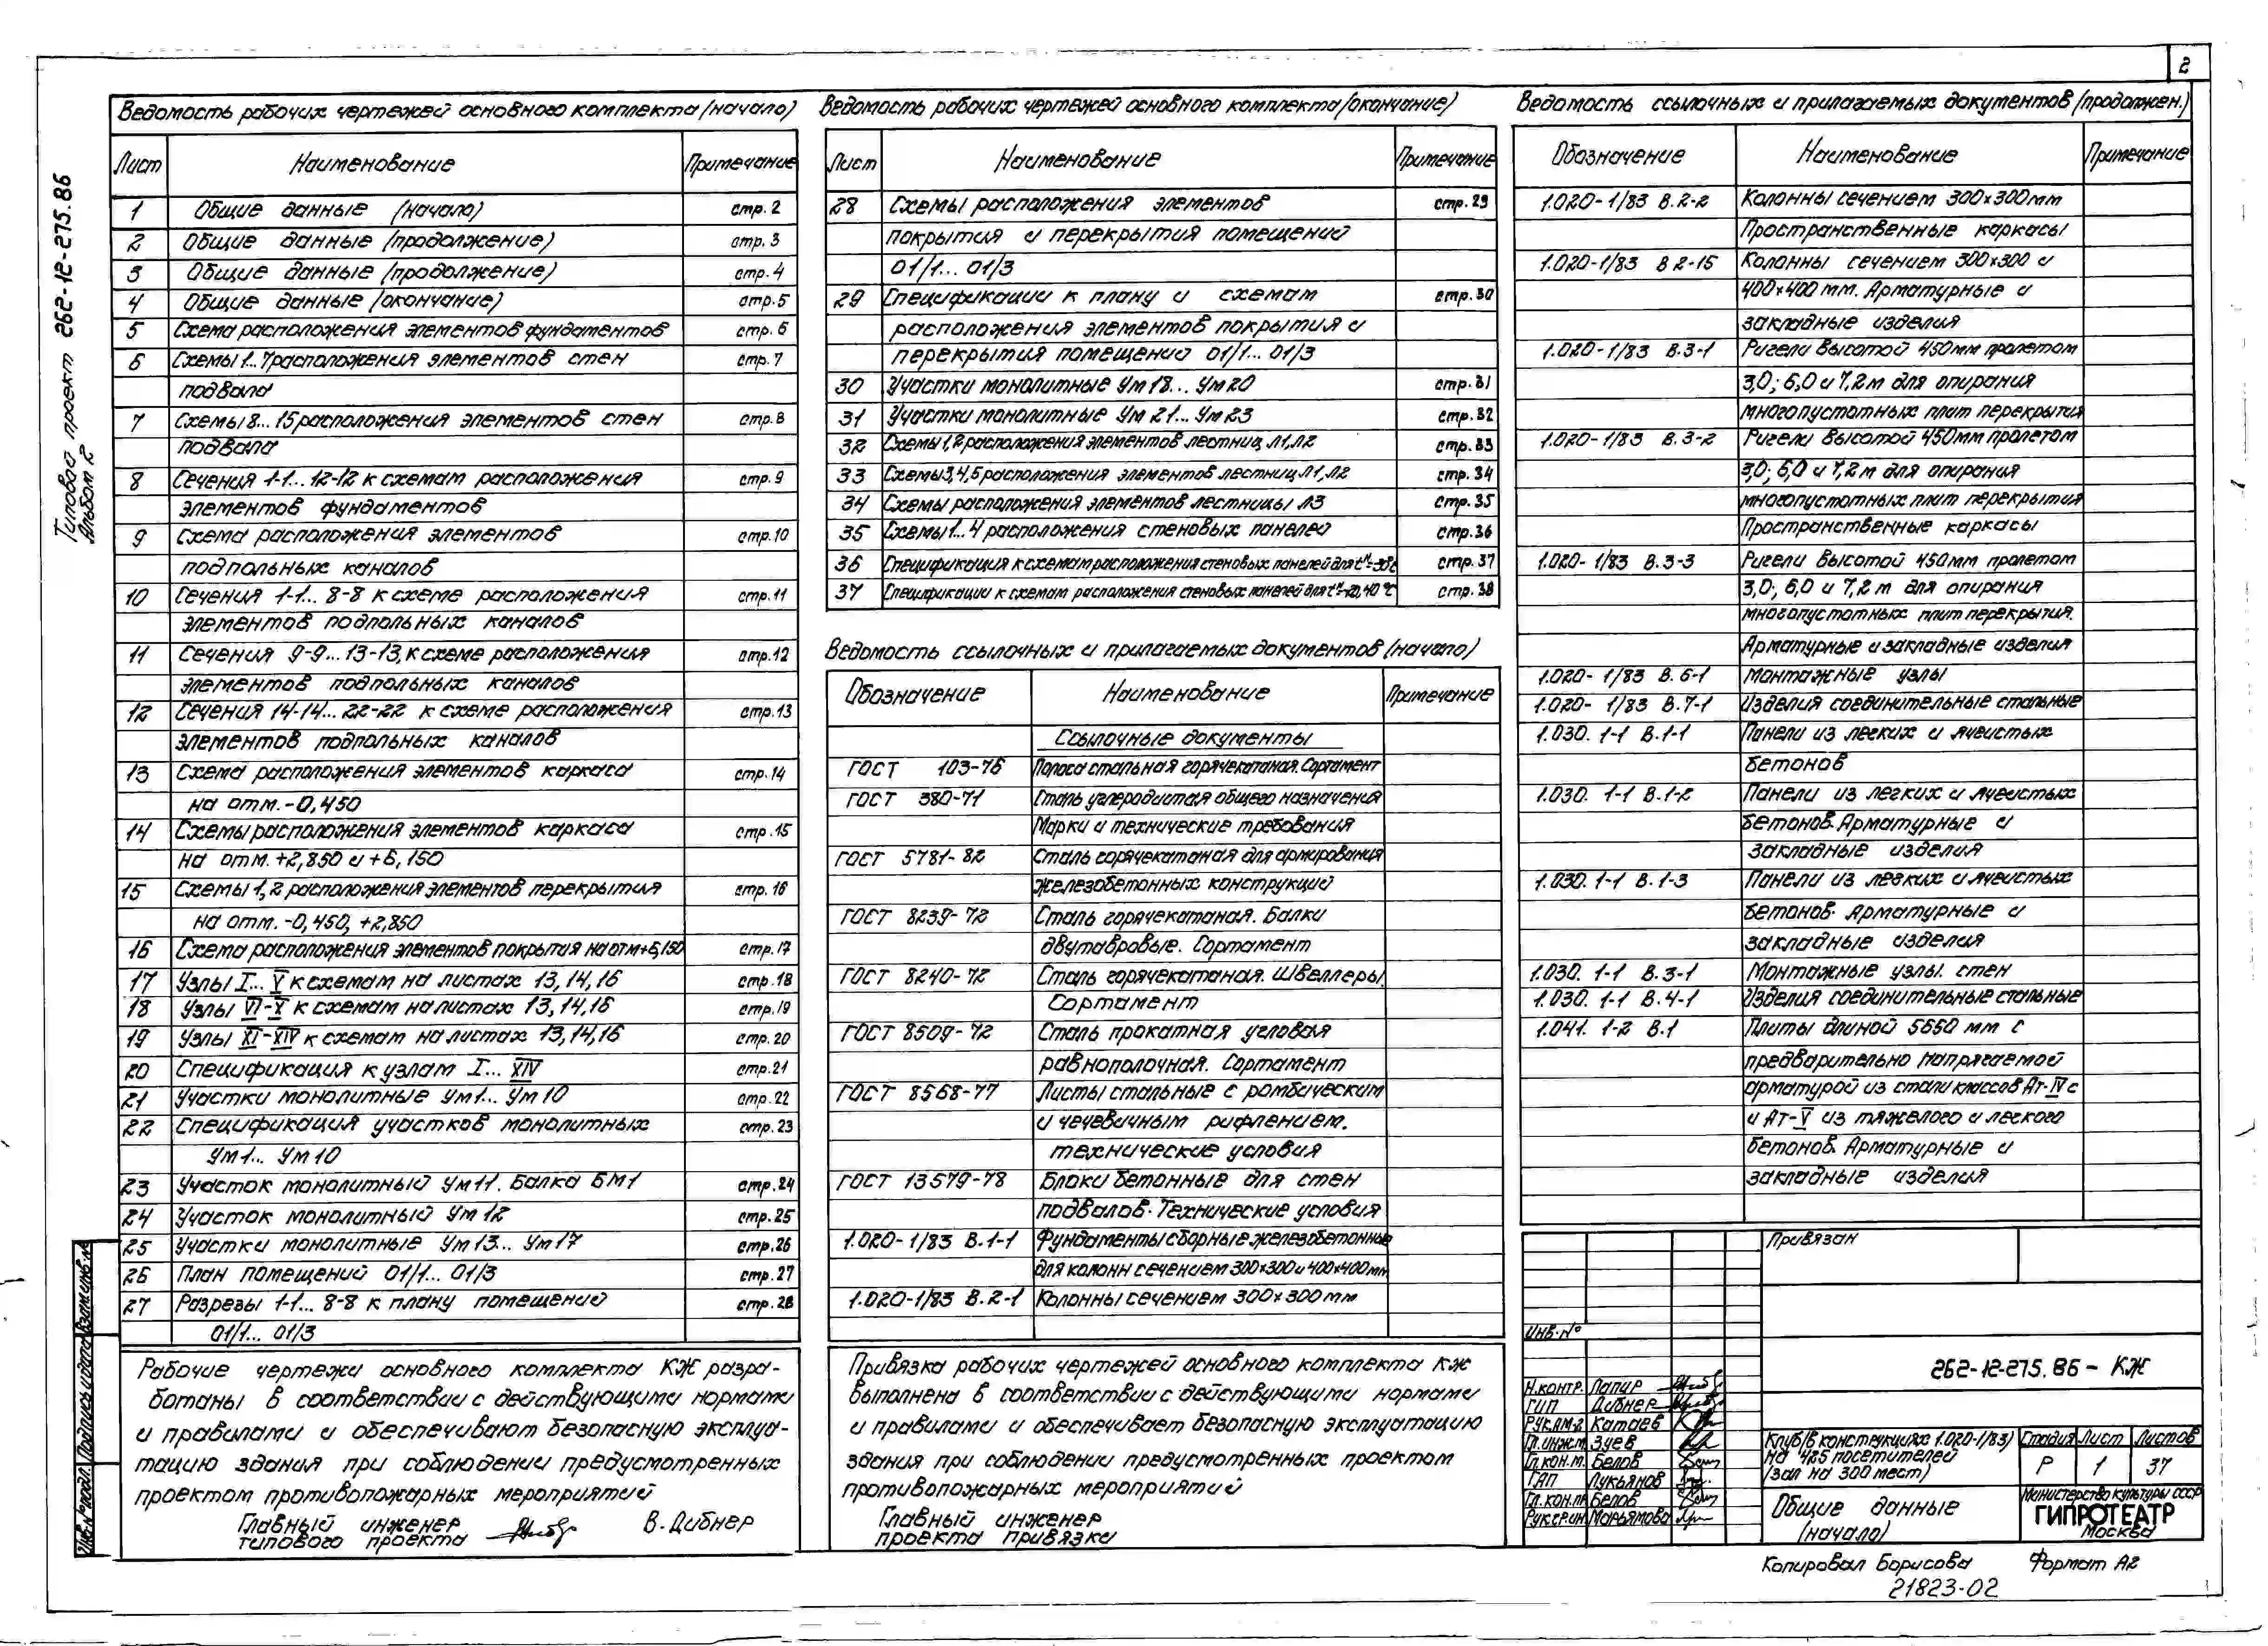 2
Типовой проект 262-12-275.86
Альбом 2
Ведомость рабочих чертежей основного комплекта (начало)
Лист Наименование Примечание
1 Общие данные (начало) стр. 2
2 Общие данные (продолжение) стр. 3
3 Общие данные (продолжение) стр. 4
4 Общие данные (окончание) стр. 5
5 Схема расположения элементов фундаментов стр. 6
6 Схемы 1... 7 расположения элементов стен стр. 7
подвала
7 Схемы 8... 15 расположения элементов стен стр. 8
подвала
8 Сечения 1-1... 12-12 к схемам расположения стр. 9
элементов фундаментов
9 Схема расположения элементов стр. 10
подпольных каналов
10 Сечения 1-1... 8-8 к схеме расположения стр. 11
элементов подпольных каналов
11 Сечения 9-9... 13-13, к схеме расположения стр. 12
элементов подпольных каналов
12 Сечения 14-14... 22-22 к схеме расположения стр. 13
элементов подпольных каналов
13 Схема расположения элементов каркаса стр. 14
на отм. -0,450
14 Схемы расположения элементов каркаса стр. 15
на отм. +2,850 и +6,150
15 Схемы 1, 2 расположения элементов перекрытия стр. 16
на отм. -0,450, +2,850
16 Схема расположения элементов покрытия на отм +6,150 стр. 17
17 Узлы I... V к схемам на листах 13, 14, 16 стр. 18
18 Узлы VI-X к схемам на листах 13, 14, 16 стр. 19
19 Узлы XI-XIV к схемам на листах 13, 14, 16 стр. 20
20 Спецификация к узлам I... XIV стр. 21
21 Участки монолитные Ум1... Ум10 стр. 22
22 Спецификация участков монолитных стр. 23
Ум1... Ум10
23 Участок монолитный Ум11. Балка БМ1 стр. 24
24 Участок монолитный Ум12 стр. 25
25 Участки монолитные Ум13... Ум17 стр. 26
26 План помещений 01/1... 01/3 стр. 27
27 Разрезы 1-1... 8-8 к плану помещений стр. 28
01/1... 01/3
Рабочие чертежи основного комплекта КЖ разра-
ботаны в соответствии с действующими нормами
и правилами и обеспечивают безопасную эксплуа-
тацию здания при соблюдении предусмотренных
проектом противопожарных мероприятий
Главный инженер
типового проекта В. Дибнер
Ведомость рабочих чертежей основного комплекта (окончание)
Лист Наименование Примечание
28 Схемы расположения элементов стр. 29
покрытия и перекрытия помещений
01/1... 01/3
29 Спецификации к плану и схемам стр. 30
расположения элементов покрытия и
перекрытия помещений 01/1... 01/3
30 Участки монолитные Ум18... Ум20 стр. 31
31 Участки монолитные Ум21... Ум23 стр. 32
32 Схемы 1, 2 расположения элементов лестниц Л1, Л2 стр. 33
33 Схемы 3, 4, 5 расположения элементов лестниц Л1, Л2 стр. 34
34 Схемы расположения элементов лестницы Л3 стр. 35
35 Схемы 1... 4 расположения стеновых панелей стр. 36
36 Спецификация к схемам расположения стеновых панелей для стр. 37
37 Спецификации к схемам расположения стеновых панелей для стр. 38
Ведомость ссылочных и прилагаемых документов (начало)
Обозначение Наименование Примечание
Ссылочные документы
ГОСТ 103-76 Полоса стальная горячекатаная. Сортамент
ГОСТ 380-71 Сталь углеродистая общего назначения
Марки и технические требования
ГОСТ 5781-82 Сталь горячекатаная для армирования
железобетонных конструкций
ГОСТ 8239-72 Сталь горячекатаная. Балки
двутавровые. Сортамент
ГОСТ 8240-72 Сталь горячекатаная. Швеллеры.
Сортамент
ГОСТ 8509-72 Сталь прокатная угловая
равнополочная. Сортамент
ГОСТ 8568-77 Листы стальные с ромбическим
и чечевичным рифлением.
технические условия
ГОСТ 13579-78 Блоки бетонные для стен
подвалов. Технические условия
1.020-1/83 В.1-1 Фундаменты сборные железобетонные
для колонн сечением 300×300 и 400×400мм
1.020-1/83 В.2-1 Колонны сечением 300×300мм
Привязка рабочих чертежей основного комплекта КЖ
выполнена в соответствии с действующими нормами
и правилами и обеспечивает безопасную эксплуатацию
здания при соблюдении предусмотренных проектом
противопожарных мероприятий
Главный инженер
проекта привязки
Ведомость ссылочных и прилагаемых документов (продолжен.)
Обозначение Наименование Примечание
1.020-1/83 В.2-2 Колонны сечением 300×300мм
Пространственные каркасы
1.020-1/83 В 2-15 Колонны сечением 300×300 и
400×400 мм. Арматурные и
закладные изделия
1.020-1/83 В.3-1 Ригели высотой 450мм пролетом
3,0; 6,0 и 7,2 м для опирания
многопустотных плит перекрытия
1.020-1/83 В.3-2 Ригели высотой 450мм пролетом
3,0; 6,0 и 7,2м для опирания
многопустотных плит перекрытия
Пространственные каркасы
1.020-1/83 В.3-3 Ригели высотой 450мм пролетом
3,0; 6,0 и 7,2 м для опирания
многопустотных плит перекрытия.
Арматурные и закладные изделия
1.020-1/83 В.6-1 Монтажные узлы
1.020-1/83 В.7-1 Изделия соединительные стальные
1.030. 1-1 В.1-1 Панели из легких и ячеистых
бетонов
1.030. 1-1 В.1-2 Панели из легких и ячеистых
бетонов. Арматурные и
закладные изделия
1.030. 1-1 В.1-3 Панели из легких и ячеистых
бетонов. Арматурные и
закладные изделия
1.030. 1-1 В.3-1 Монтажные узлы. стен
1.030. 1-1 В.4-1 Изделия соединительные стальные
1.041. 1-2 В.1 Плиты длиной 5650 мм с
предварительно напрягаемой
арматурой из стали классов Ат-IV с
и Ат-V из тяжелого и легкого
бетонов. Арматурные и
закладные изделия
Привязан
Инв. №
262-12-275.86 - КЖ
Н.контр. Лапир
ГИП Дибнер
Рук.АМ-2 Катаев
Гл.инж.м. Зуев
Гл.кон.м. Белов
ГАП Лукьянов
Гл.кон.пр Белов
Рук.гр.ин. Марьямова
Клуб (в конструкциях 1.020-1/83)
на 425 посетителей
(зал на 300 мест)
Стадия Лист Листов
Р 1 37
Общие данные
(начало)
Министерство культуры СССР
ГИПРОТЕАТР
Москва
Копировал Борисова Формат А2
21823-02
Инв.№ подл. Подпись и дата Взам.инв.№